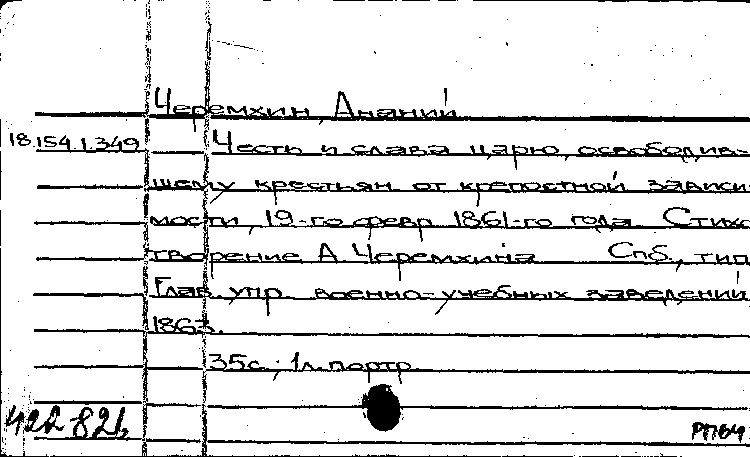 Черемхин, Ананий
18.154.1.349 Честь и слава царю, освободив-
шему крестьян от крепостной зависи
мости, 19-го февр. 1861-го года. Стихо
творение А. Черемхина. Спб., тип.
Глав. упр. военно-учебных заведений,
1863.
35с.; 1л. портр.
422-82